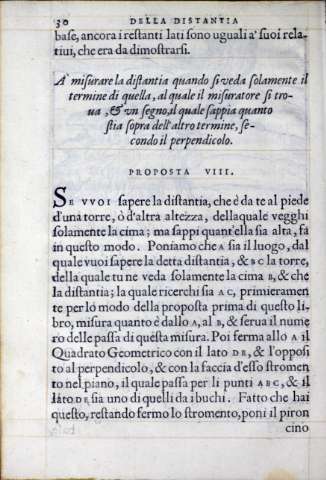 30 DELLA DISTANTIA
base, ancora i restanti lati sono uguali a' suoi rela-
tiui, che era da dimostrarsi.
A' misurare la distantia quando si veda solamente il
termine di quella, al quale il misuratore si tro-
ua, & vn segno, il quale sappia quanto
stia sopra dell'altro termine, se-
condo il perpendicolo.
PROPOSTA VIII.
SE VVOI sapere la distantia, che è da te al piede
d'una torre, ò d'altra altezza, della quale vegghi
solamente la cima; ma sappi quant'ella sia alta, fa
in questo modo. Poniamo che A sia il luogo, dal
quale vuoi sapere la detta distantia, & B C la torre,
della quale tu ne veda solamente la cima B, & che
la distantia; la quale ricerchi sia A C, primieramen
te per lo modo della proposta prima di questo li-
bro, misura quanto è dallo A, al B, & serua il nume
ro delle passa di questa misura. Poi ferma allo A il
Quadrato Geometrico con il lato D E, & l'opposi
to al perpendicolo, & con la faccia d'esso stromen
to nel piano, il quale passa per li punti A B C, & il
lato D E sia uno di quelli da i buchi. Fatto che hai
questo, restando fermo lo stromento, poni il piron
cino